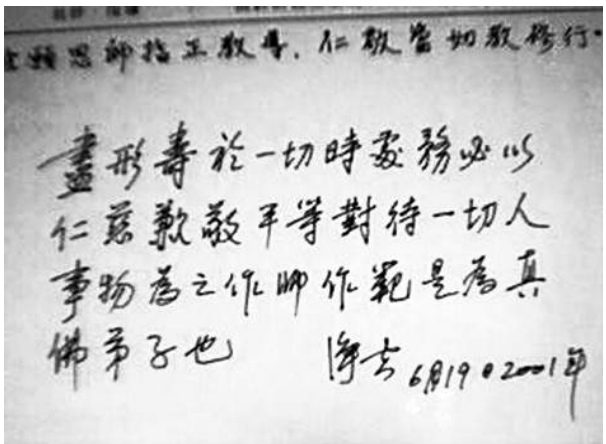 願恩師指正教導，仁敬當如教修行。
盡形壽於一切時處務必以
仁慈歉敬平等對待一切人
事物為之作師作範是為真
佛弟子也
淨空 6月19日2001年